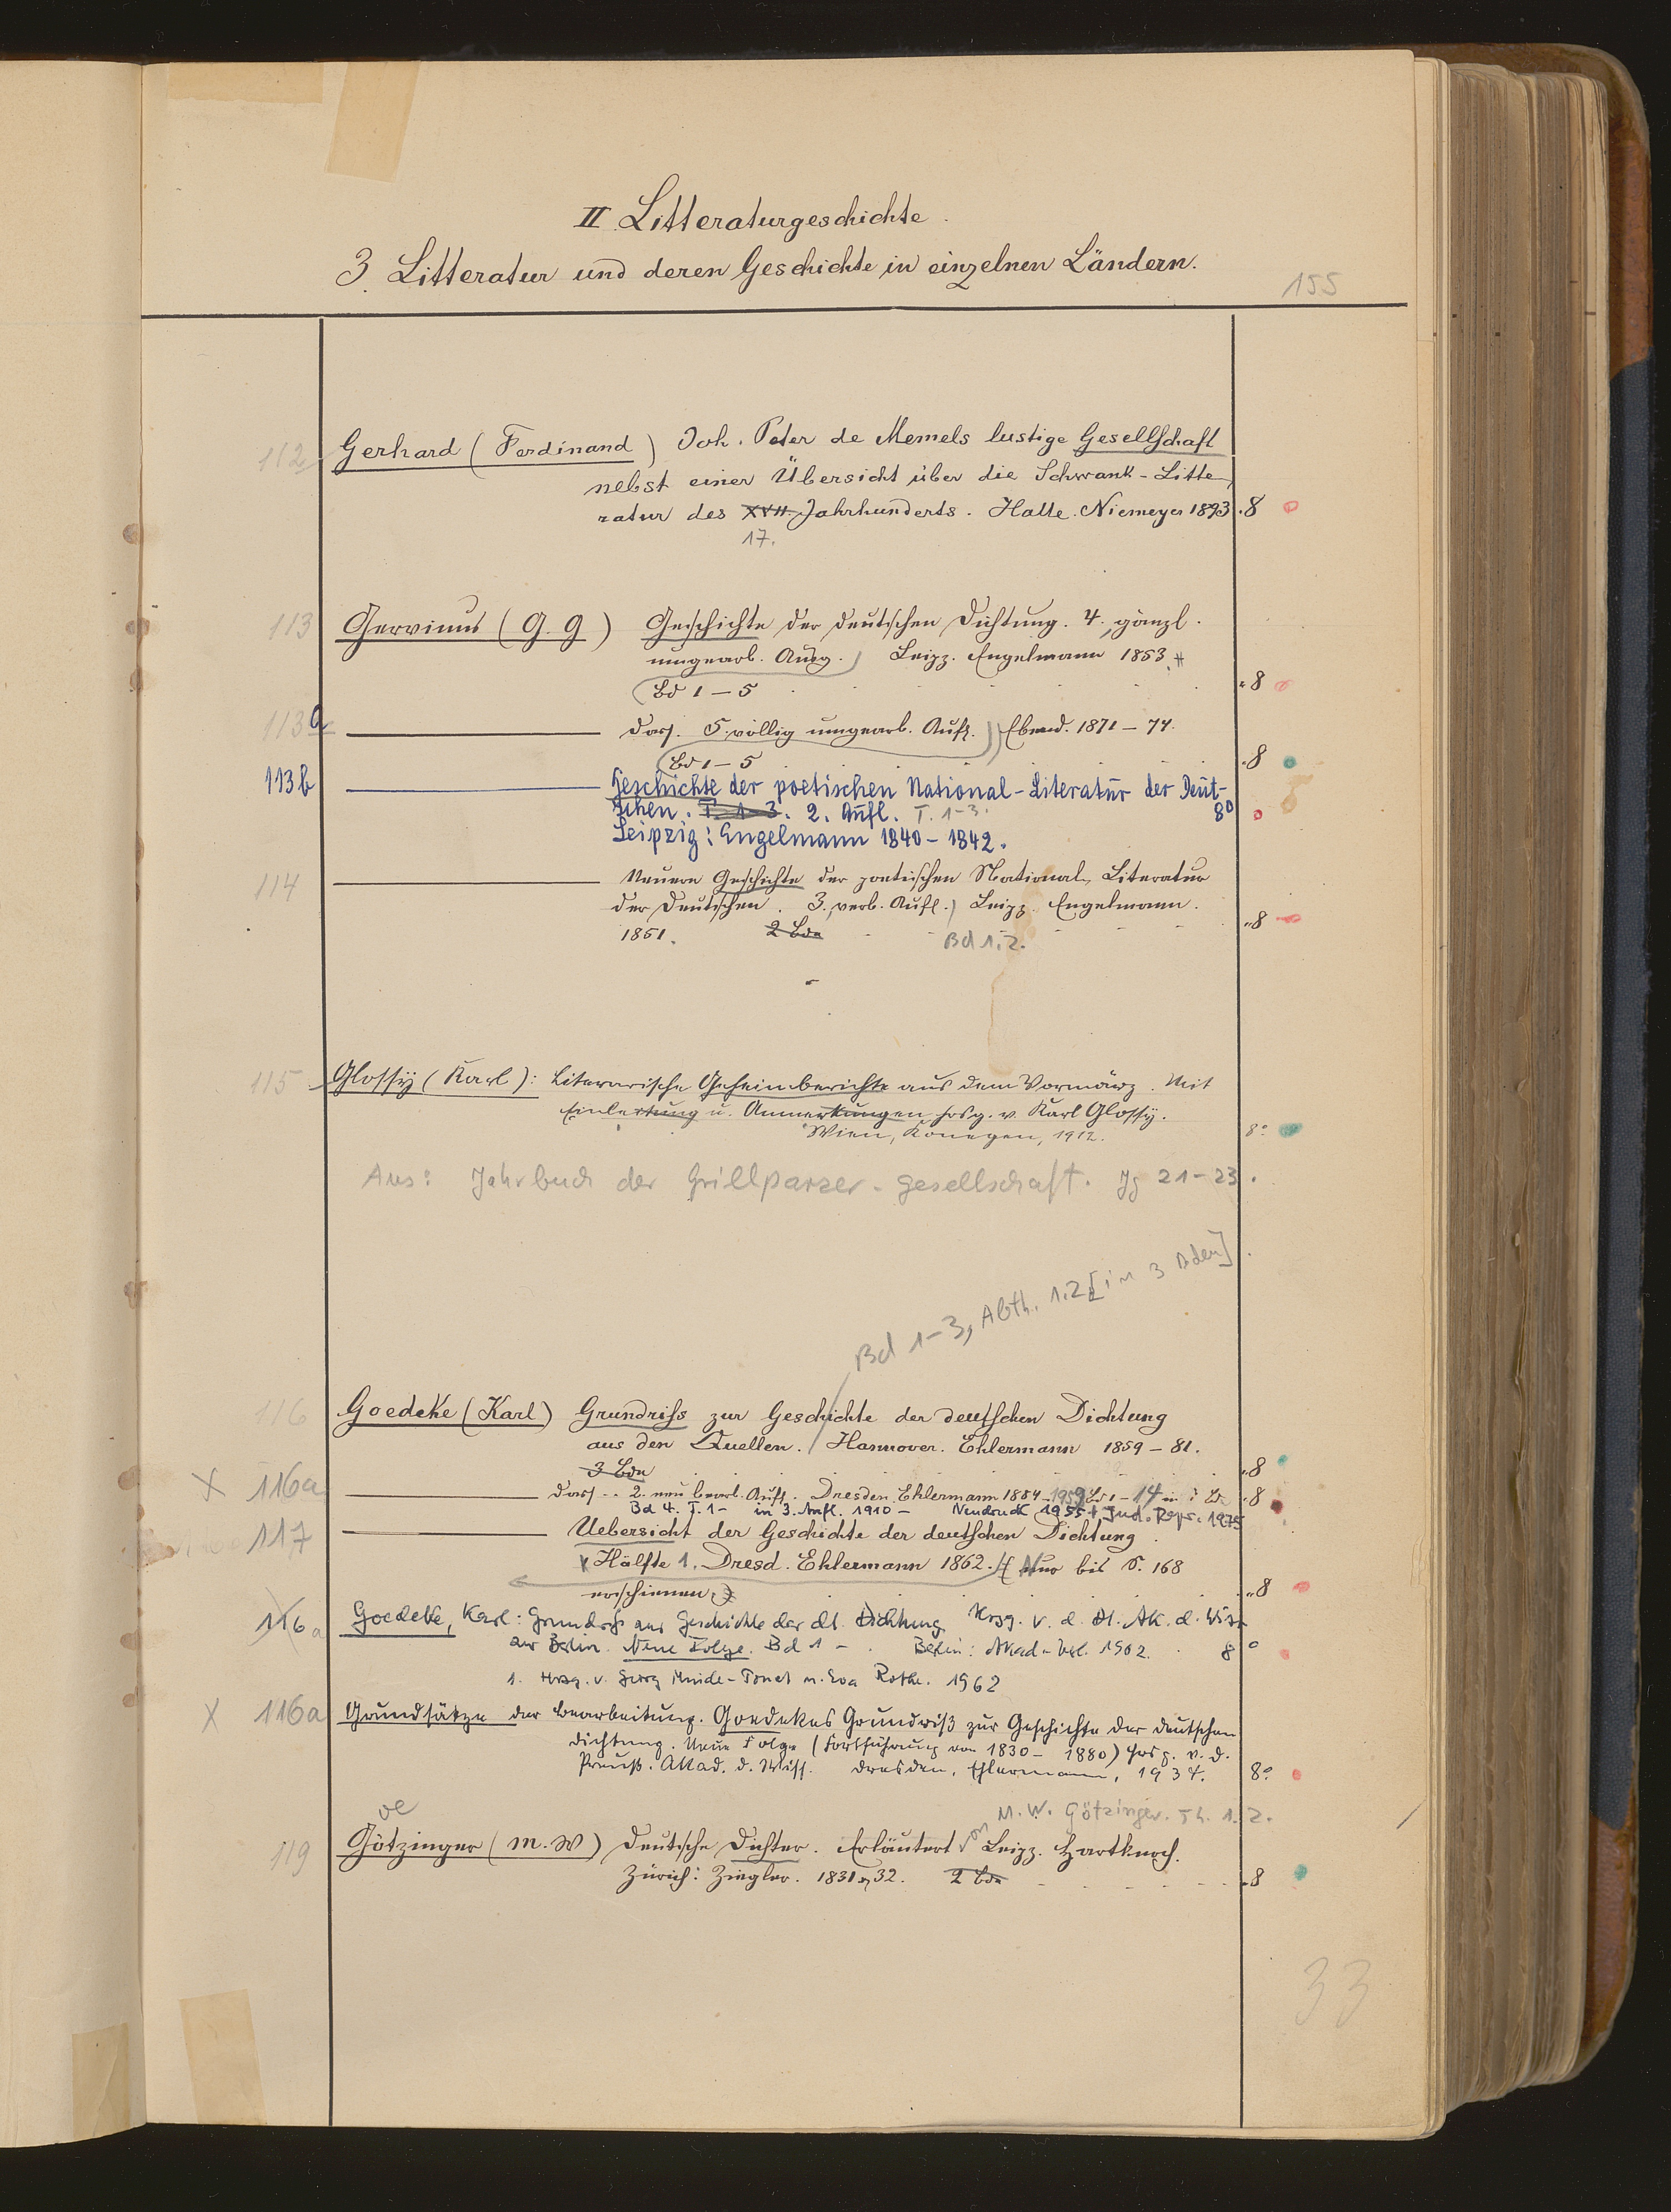 II Litteraturgeschichte.
3. Litteratur und deren Geschichte in einzelnen Ländern.
155
112 Gerhard (Ferdinand) Joh. Peter de Memels lustige Gesellschaft
nebst einer Übersicht über die Schwank-Litte-
ratur des XVII. Jahrhunderts. Halle. Niemeyer 1893. 8
17.
113 Gervinus (G. G) Geschichte der deutschen Dichtung. 4., gänzl.
umgearb. Ausg.) Leipz. Engelmann 1853.
(Bd 1-5 8
113a dass. 5. völlig umgearb. Aufl.) Ebend. 1871-74.
(Bd 1-5 8
113b Geschichte der poetischen National-Literatur der Deut-
schen. T. 1-3. 2. Aufl. T. 1-3. 8°
Leipzig: Engelmann 1840-1842.
114 Neuere Geschichte der poetischen National-Literatur
der Deutschen. 3., verb. Aufl.) Leipz. Engelmann.
1851. 2 Bde Bd 1.2. 8
115 Glossy (Karl): Literarische Geheimberichte aus dem Vormärz. Mit
Einleitung u. Anmerkungen hrsg. v. Karl Glossy.
Wien, Konegen, 1912. 8°
Aus: Jahrbuch der Grillparzer-gesellschaft. Jg 21-23.
Bd 1-3, Abth. 1.2 [in 3 Bden]
116 Goedeke (Karl) Grundriss zur Geschichte der deutschen Dichtung
aus den Quellen. / Hannover. Ehlermann 1859-81.
3 Bde 8
X 116a dass. 2. neu bearb. Aufl. Dresden. Ehlermann 1884-1959 Bd 1-14 8
Bd 4. T. 1- in 3. Aufl. 1910- Neudruck 1955 + Repr. 1975
117 Uebersicht der Geschichte der deutschen Dichtung.
Hälfte 1. Dresd. Ehlermann 1862. (Nur bis S. 168
erschienen.) 8
116a Goedeke, Karl: Grundriß zur Geschichte der dt. Dichtung Hrsg. v. d. Dt. Ak. d. Wiss
zu Berlin. Neue Folge. Bd 1- . Berlin: Akad.-Verl. 1962. 8°
1. Hrsg. v. Georg Minde-Pouet u. Eva Rothe. 1962
X 116a Grundsätze der Bearbeitung. Goedekes Grundriß zur Geschichte der deutschen
Dichtung. Neue Folge (Fortführung von 1830-1880) Hrsg. v. d.
Preuß. Akad. d. Wiss. Dresden, Ehlermann, 1934. 8°
oe M. W. Götzinger. Th. 1. 2.
119 Götzinger (M. W) Deutsche Dichter. Erläutert von Leipz. Hartknoch.
Zürich: Ziegler. 1831, 32. 2 Bde 8
33